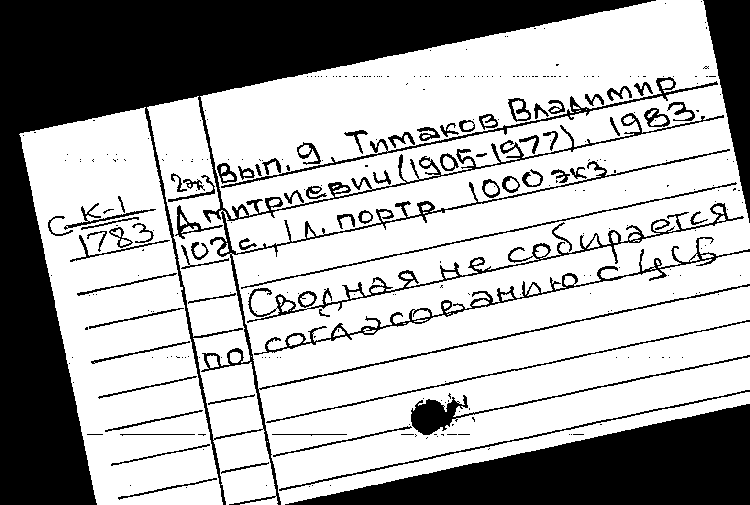 2экз Вып. 9. Тимаков, Владимир
Дмитриевич (1905-1977). 1983.
С К-1
1783
102с., 1 л. портр. 1000 экз.
Сводная не собирается
по согласованию с ЦСБ